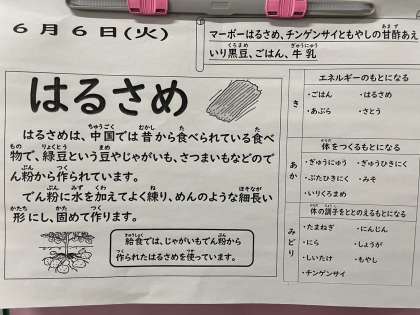 6月6日(火)
マーボーはるさめ、チンゲンサイともやしの甘酢あえ
いり黒豆、ごはん、牛乳
はるさめ
はるさめは、中国では昔から食べられている食べ
物で、緑豆という豆やじゃがいも、さつまいもなどので
ん粉から作られています。
でん粉に水を加えてよく練り、めんのような細長い
形にし、固めて作ります。
給食では、じゃがいもでん粉から
作られたはるさめを使っています。
き
エネルギーのもとになる
・ごはん ・はるさめ
・あぶら ・さとう
あか
体をつくるもとになる
・ぎゅうにゅう ・ぎゅうひきにく
・ぶたひきにく ・みそ
・いりくろまめ
みどり
体の調子をととのえるもとになる
・たまねぎ ・にんじん
・にら ・しょうが
・しいたけ ・もやし
・チンゲンサイ